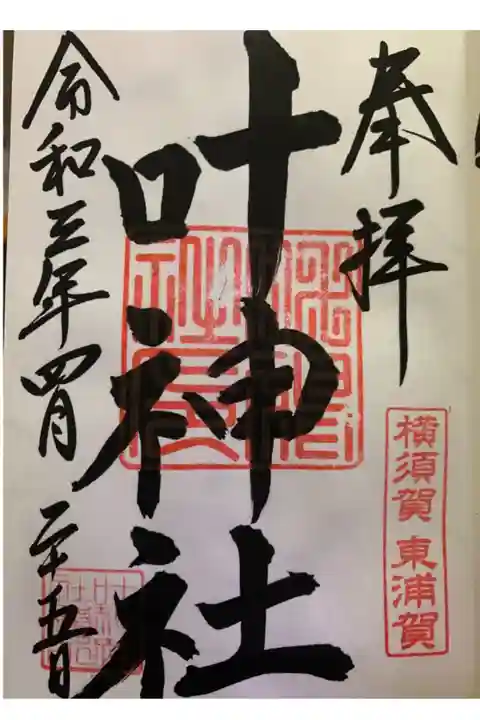 奉拝
横須賀 東浦賀
叶神社
令和三年四月 二十五日